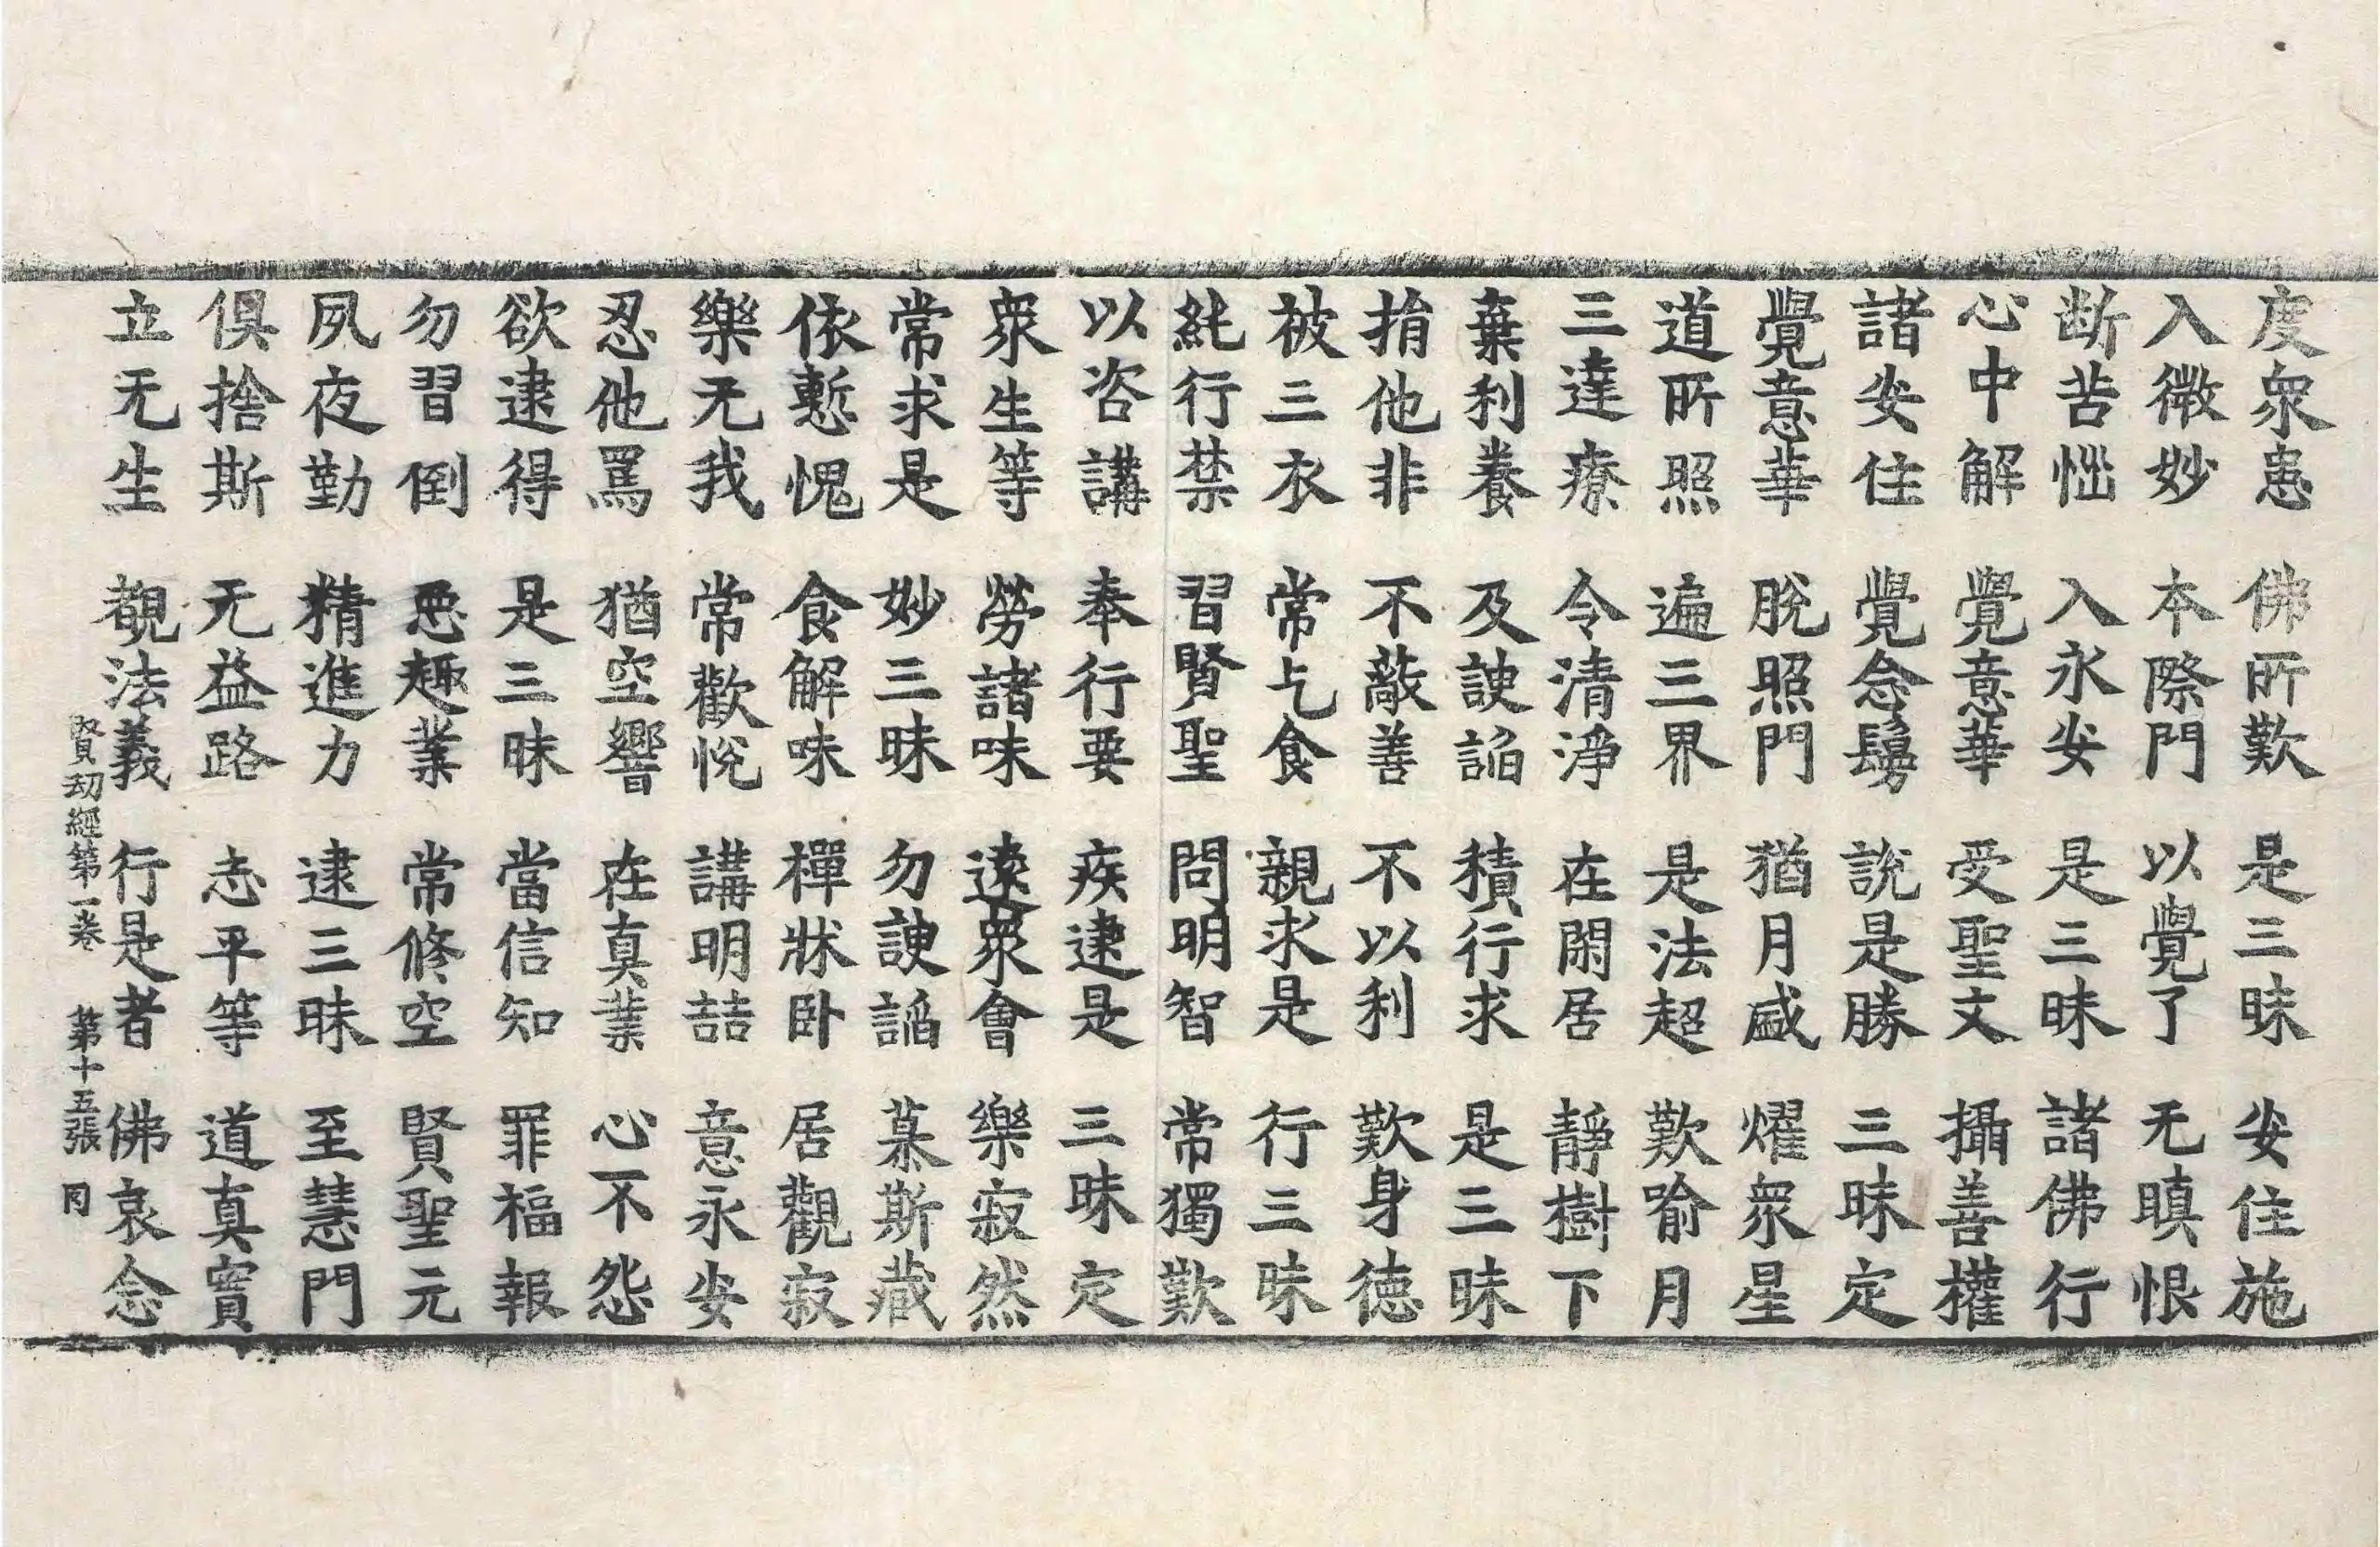 度衆患 佛所歎 是三昧 安住施
入微妙 本際門 以覺了 无瞋恨
断苦惱 入永安 是三昧 諸佛行
心中解 覺意華 受聖文 攝善權
諸安住 覺念鬘 說是勝 三昧定
覺意華 脫照門 猶月盛 燿衆星
道所照 遍三界 是法超 歎喻月
三達療 令清淨 在閑居 靜樹下
棄利養 及諛諂 積行求 是三昧
捐他非 不蔽善 不以利 歎身徳
被三衣 常乞食 親求是 行三昧
純行禁 習賢聖 問明智 常獨歎
以咨講 奉行要 疾逮是 三昧定
衆生等 勞諸味 遠衆會 樂寂然
常求是 妙三昧 勿諛諂 慕斯藏
依慙愧 食解味 樿牀卧 居觀寂
樂无我 常歡悅 講明喆 意永安
忍他罵 猶空響 在真業 心不怨
欲逮得 是三昧 當信知 罪福報
勿習倒 悪趣業 常修空 賢聖元
夙夜勤 精進力 逮三昧 至慧門
俱捨斯 无益路 志平等 道真實
立无生 覩法義 行是者 佛哀念
賢劫經第一卷 第十五張 冈